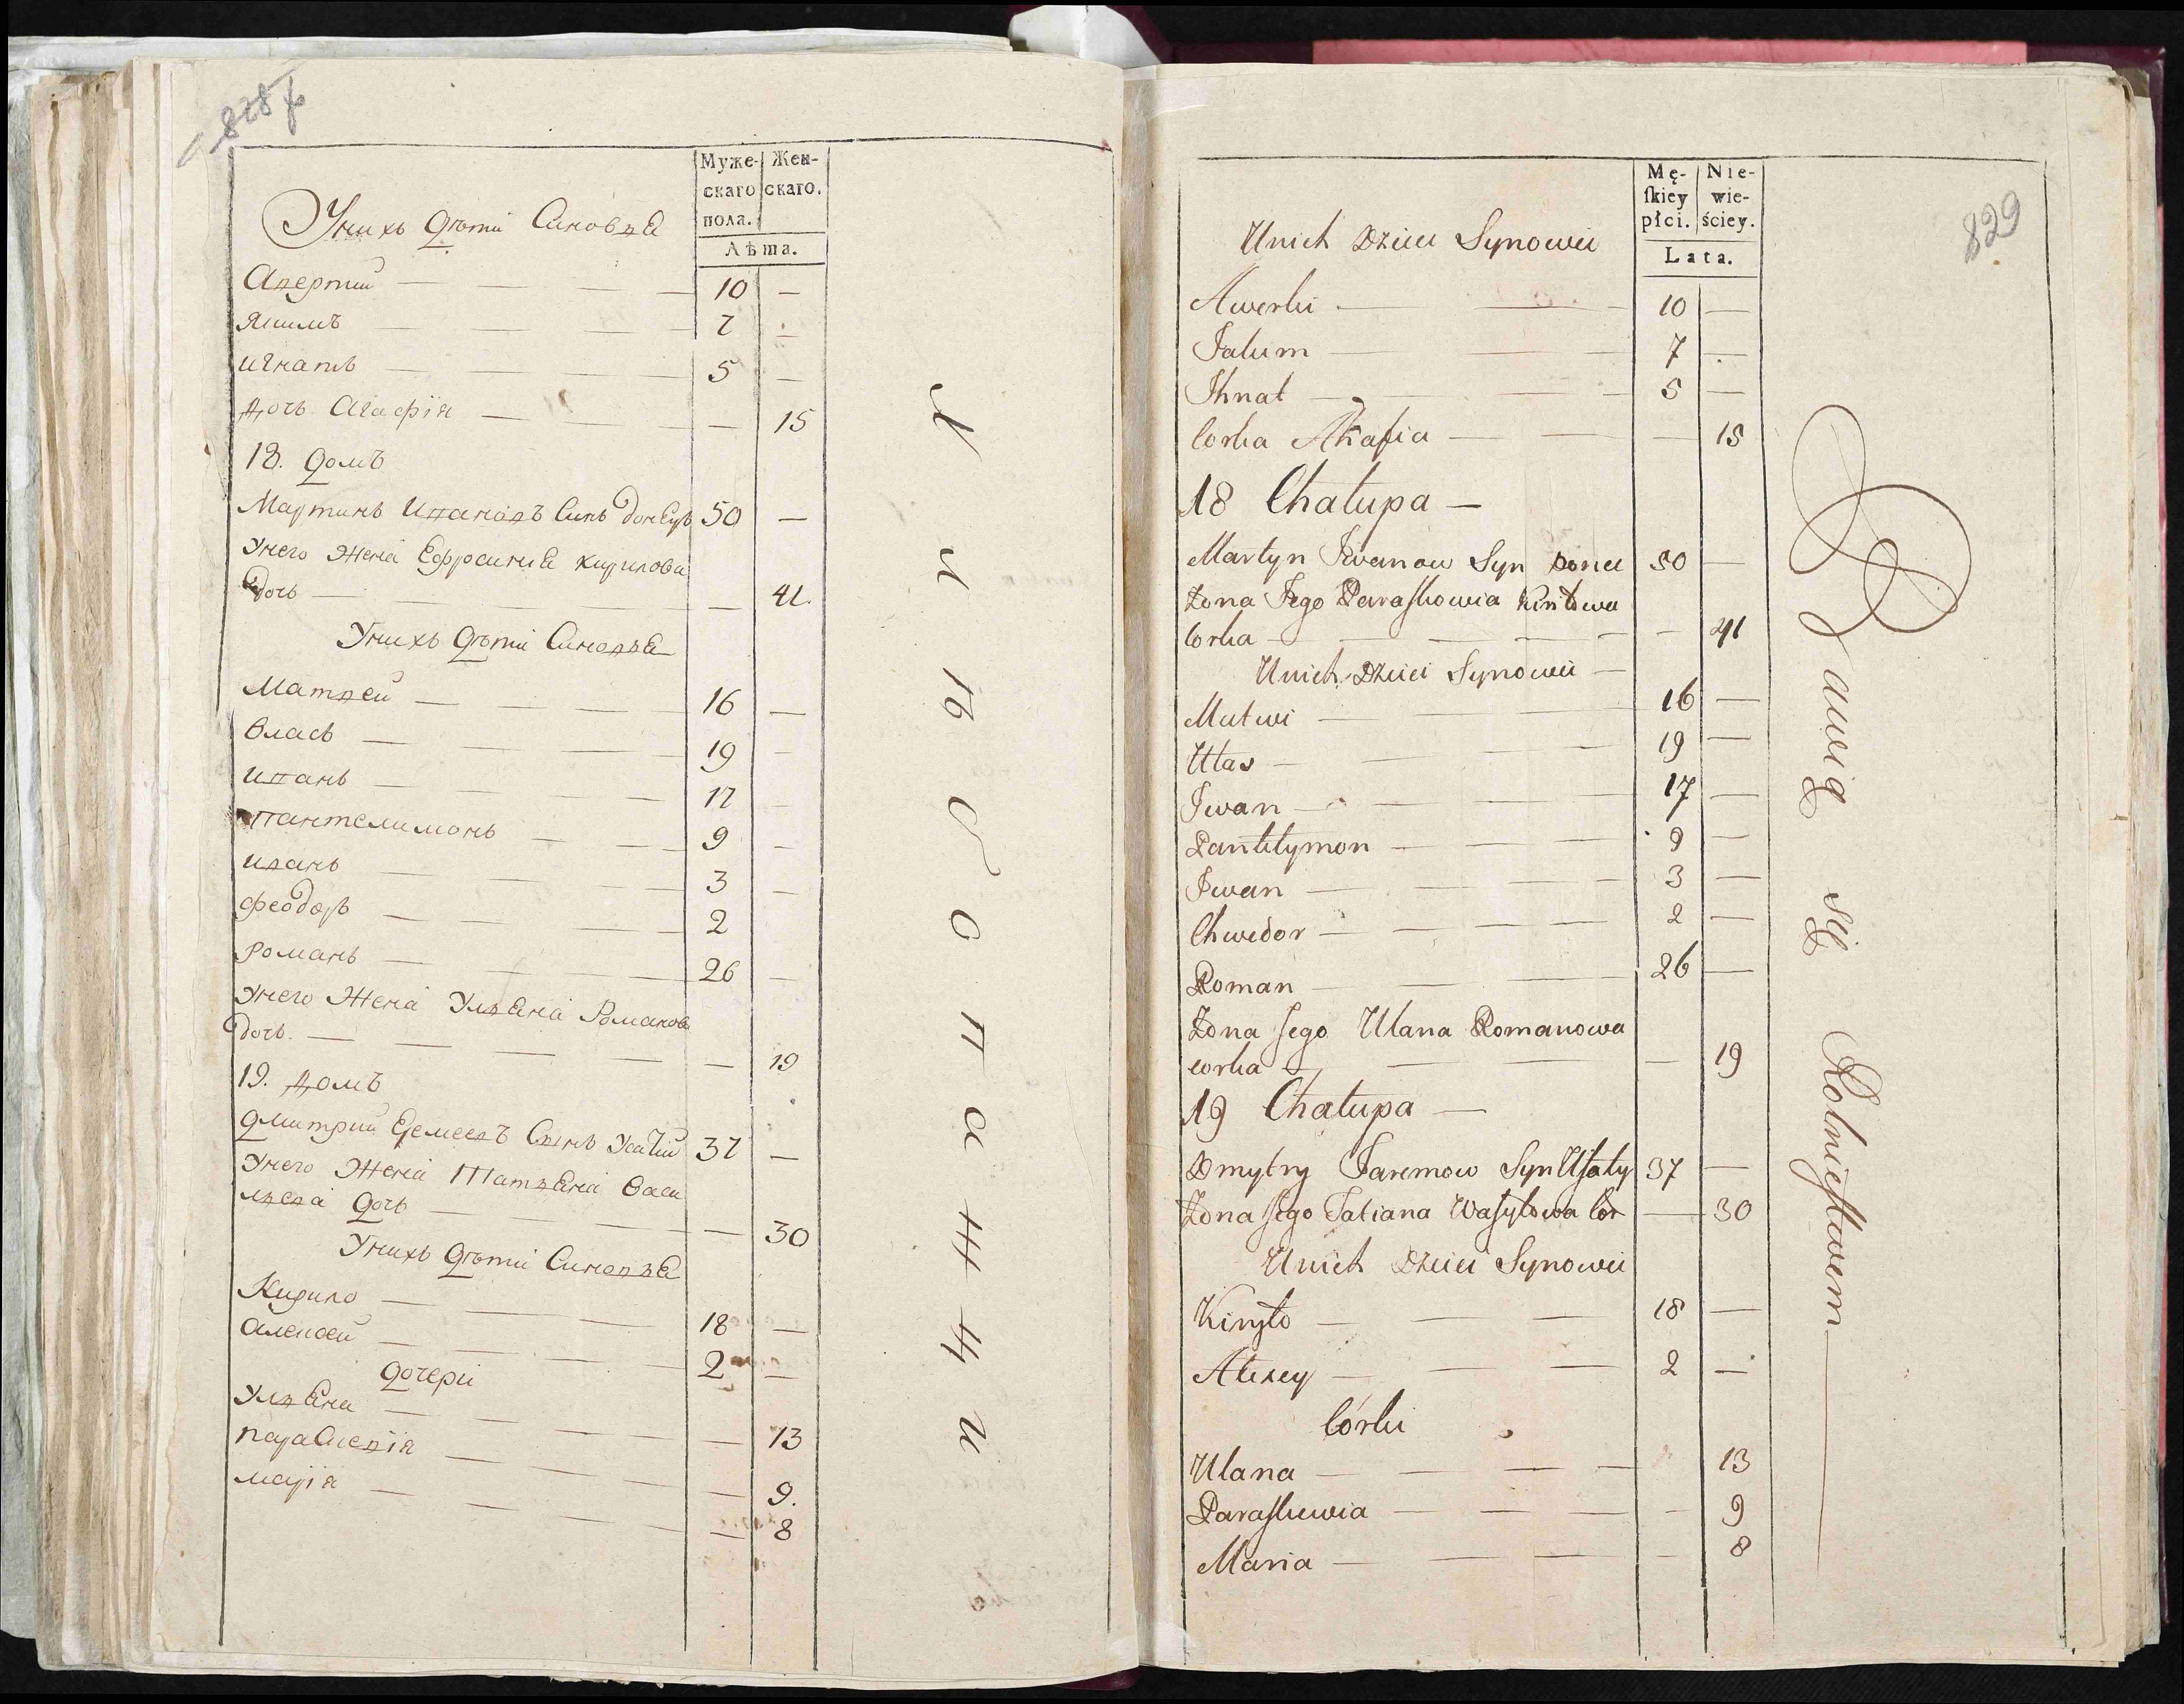 828
Муже-
скаго
пола.
Жен-
скаго.
Лѣта.
Унихъ дѣти Синовья
Аверкий — 10 —
Якимъ — 7 —
Игнатъ — 5 —
Дочь Агафія — — 15
18. Домъ
Мартинъ Ивановъ Синъ Донецъ 50 —
Унего Жена Ефросиния Кирилова
дочь — — 41
Унихъ дѣти Синовья
Матвей — 16 —
Власъ — 19 —
Иванъ — 17 —
Пантелимонъ — 9 —
Иванъ — 3 —
Феодоръ — 2
Романъ — 26 —
Унего Жена Ульяна Романова
дочь. — — 19
19. Домъ
Дмитрий Еремеевъ Сынъ Усатий 37 —
Унего Жена Татьяна Васи
льева Дочь — — 30
Унихъ дѣти Синовья
Кирило — 18 —
Алексей — 2 —
Дочери
Ульяна — — 13
Параскевія — — 9.
Марія — — 8
829
Mę-
ſkiey
płci.
Nie-
wie-
ściey.
Lata.
Unich Dzieci Synowie
Awerki — 10 —
Jakim — 7 —
Ihnat — 5 —
Corka Ahafia — — 15
18 Chałupa —
Martyn Iwanow Syn Doniec 50 —
Żona Jego Paraſkowia Kiryłowa
Corka — — 41
Unich Dzieci Synowie —
Matwi — 16 —
Ułas — 19 —
Iwan — 17 —
Pantilymon — 9 —
Iwan — 3 —
Chwedor — 2 —
Roman — 26 —
Żona Jego Ulana Romanowa
corka — — 19
19 Chałupa —
Dmytry Jaremow Syn Uſaty 37 —
Żona Jego Tatiana Waſylowa Cor — 30
Unich Dzieci Synowie
Kiryło — 18 —
Alexey — 2 —
Córki
Ulana — 13
Paraſkiewia — — 9
Maria — — 8
Bawią się Rolnictwem —